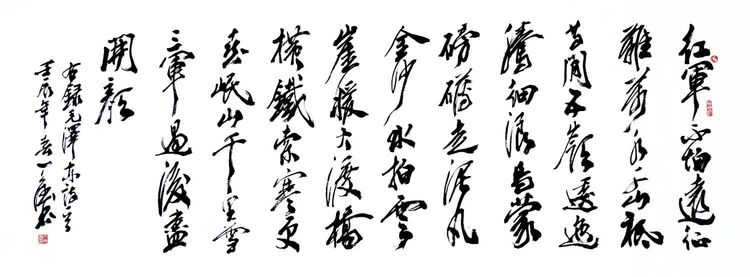 紅軍不怕遠征
難萬水千山祇
等閑五嶺逶迤
騰細浪烏蒙
磅礴走泥丸
金沙水拍雲
崖暖大渡橋
橫鐵索寒更
喜岷山千里雪
三軍過後盡
開顏
右錄毛澤东詩
壬辰年春